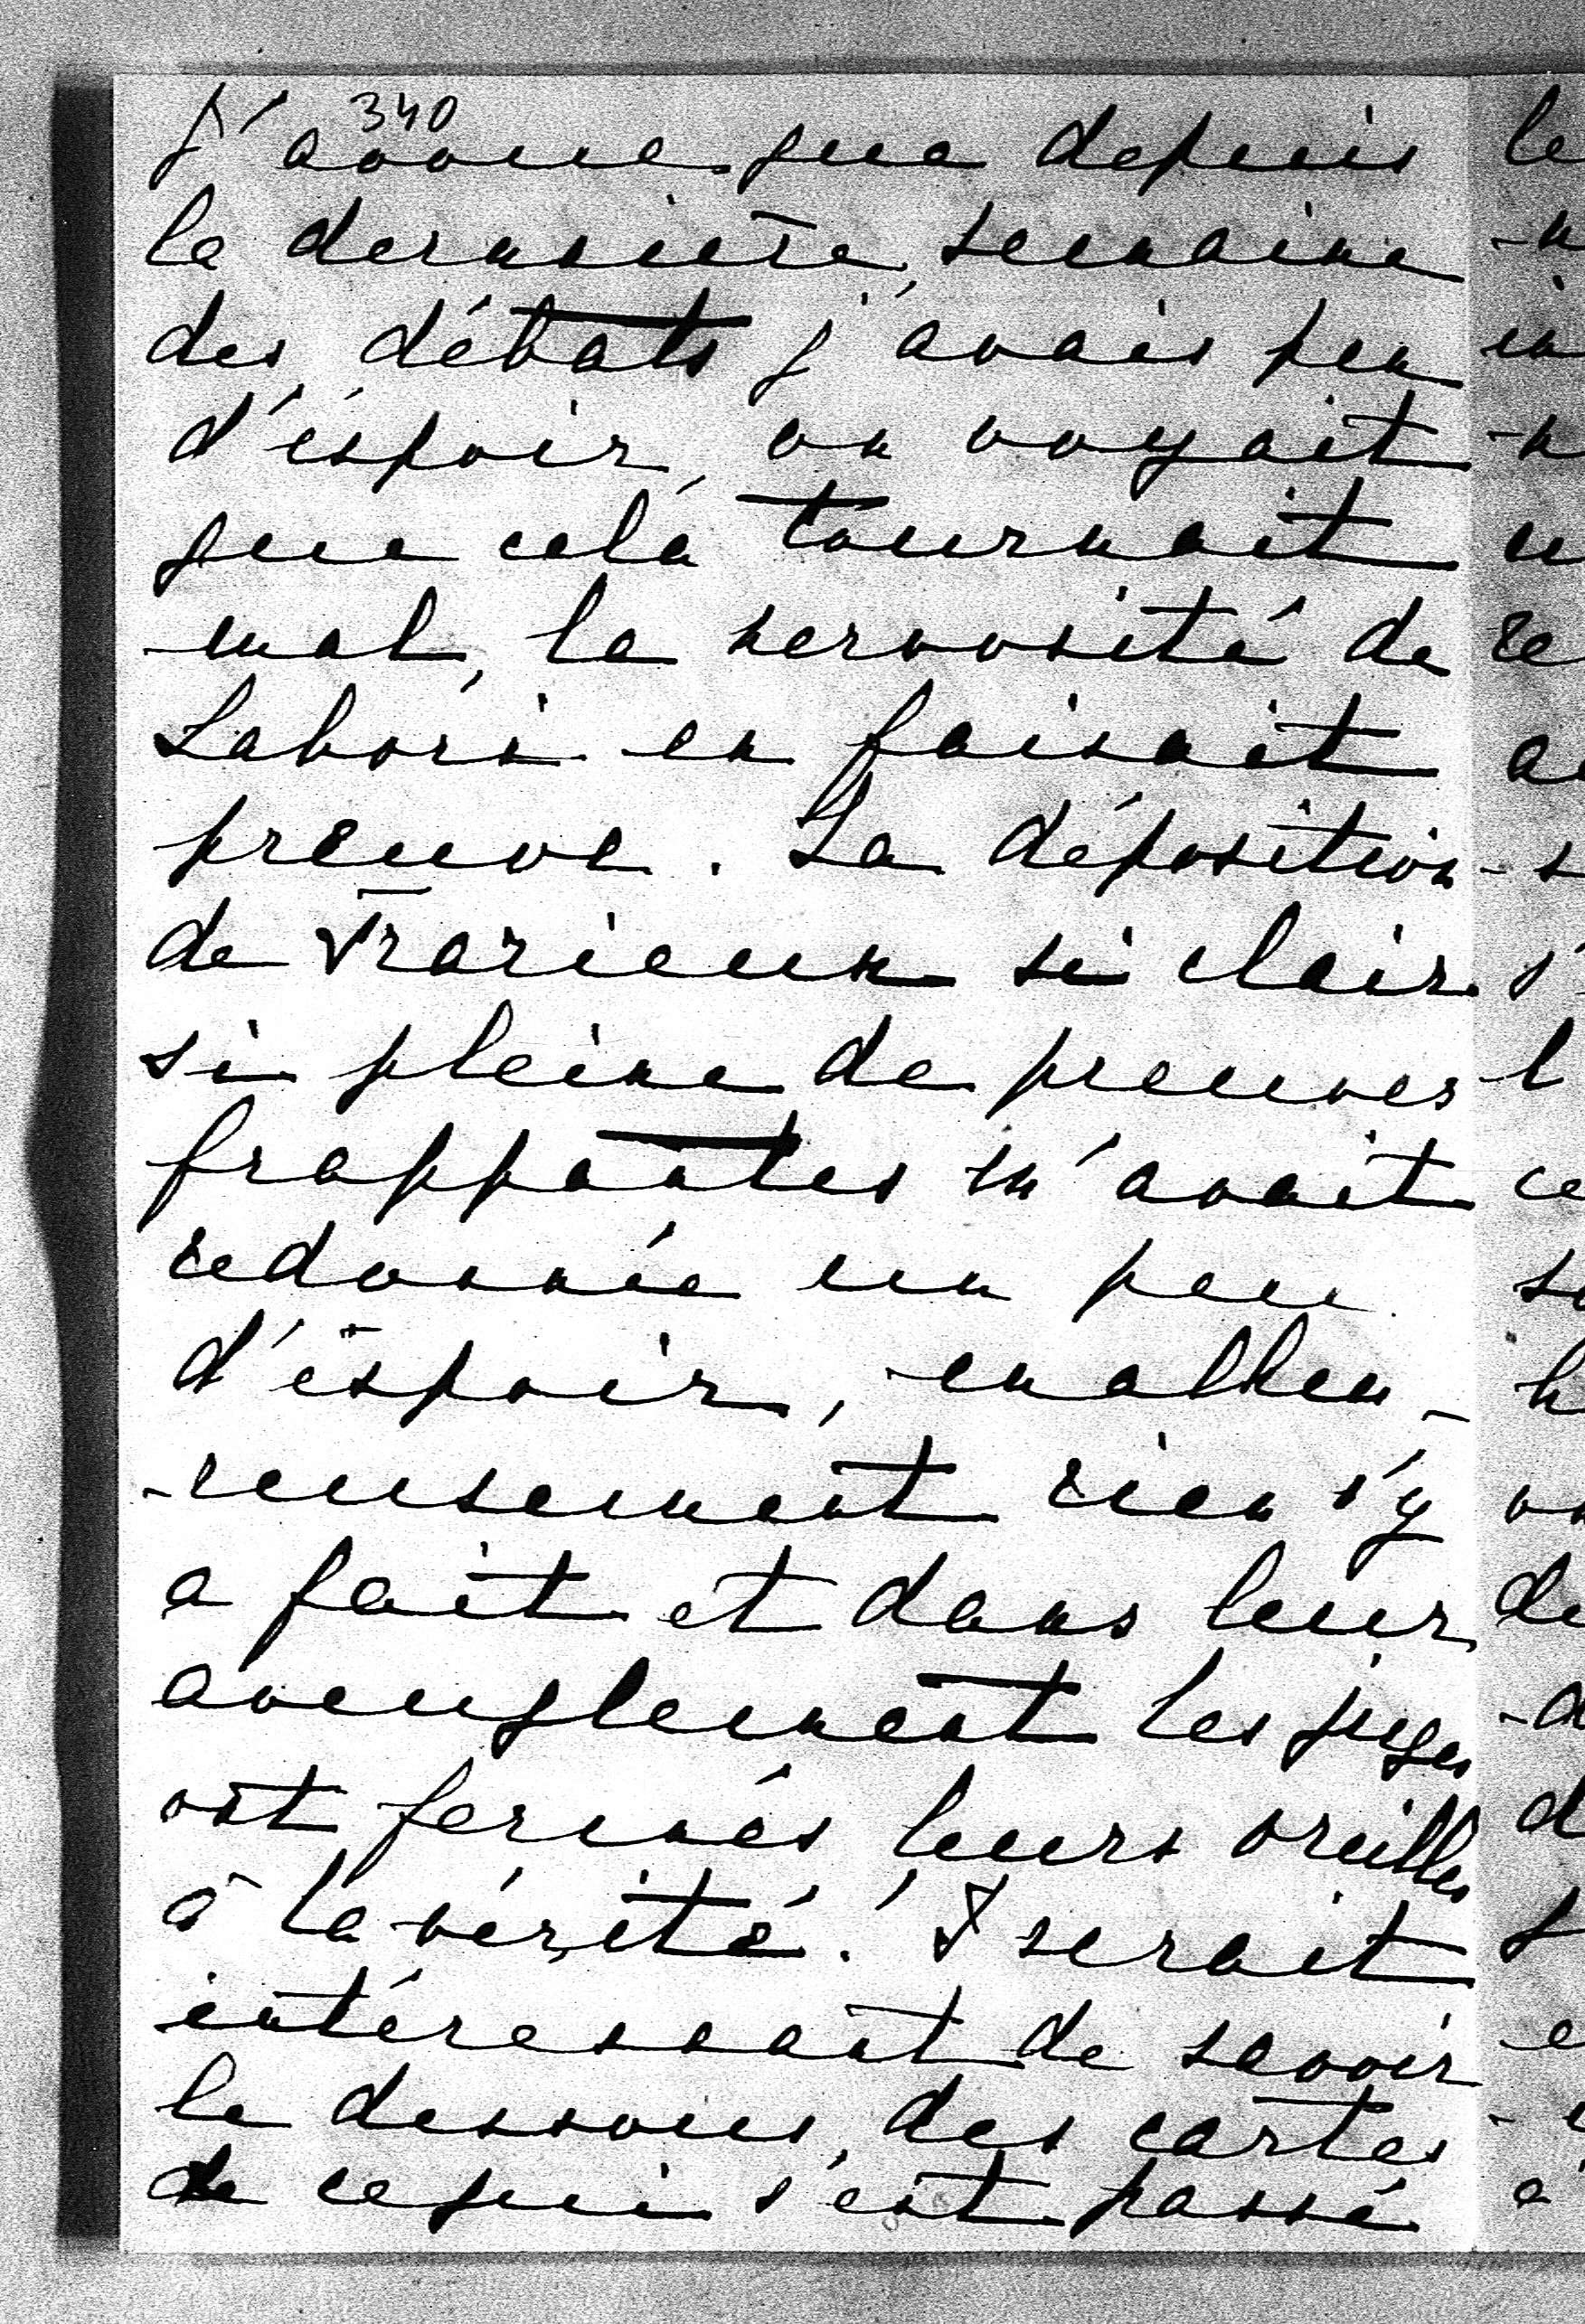 340
J'avoue que depuis
la dernière semaine
des débats j'avais peu
d'éspoir, on voyait
que cela tournait
mal, la nervosité de
Labori en faisait
preuve. La déposition
de Trarieux si clair
si pleine de preuves
frappantes m'avait
redonnée un peu
d'éspoir, malheu-
-reusement rien n'y
a fait et dans leur
aveuglement les juges
ont fermés leurs oreilles
à la vérité! Il serait
intéressant de savoir
le dessous des cartes
de ce qui s'est passé